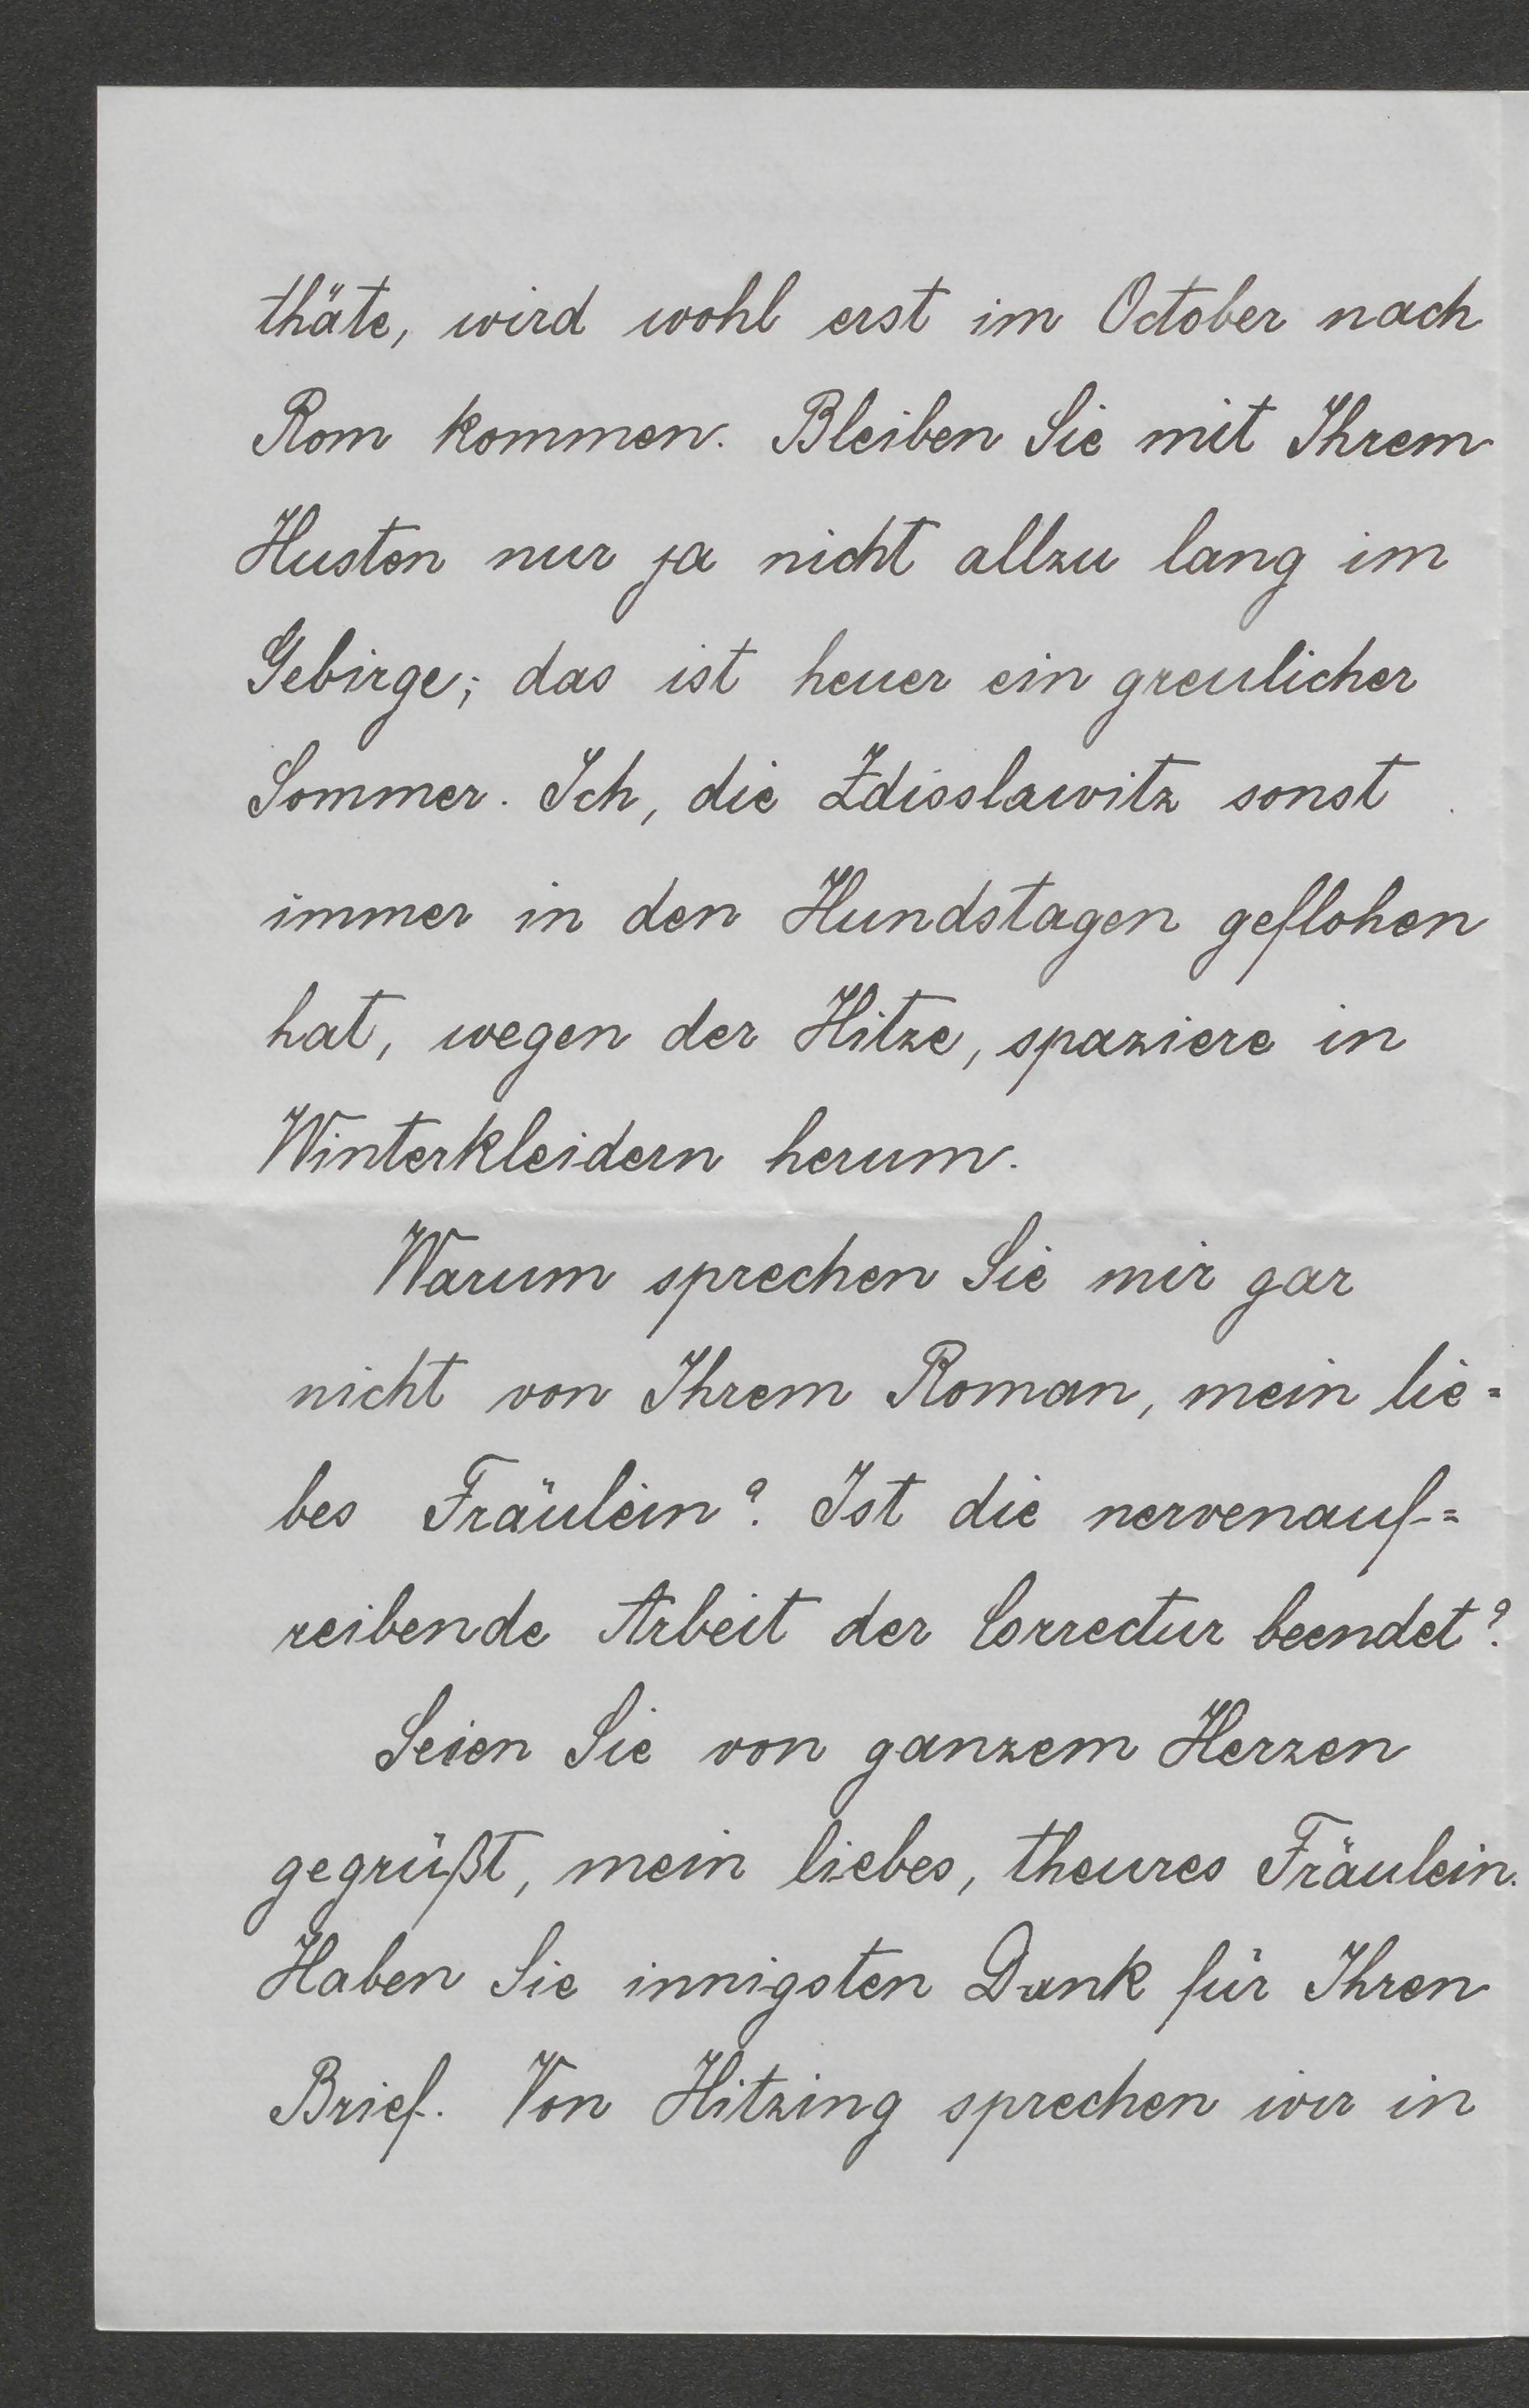 thäte, wird wohl erst im October nach
Rom kommen. Bleiben Sie mit Ihrem
Husten nur ja nicht allzu lang im
Gebirge; das ist heuer ein greulicher
Sommer. Ich, die Zdisslawitz sonst
immer in den Hundstagen geflohen
hat, wegen der Hitze, spaziere in
Winterkleidern herum.
Warum sprechen Sie mir gar
nicht von Ihrem Roman, mein lie=
bes Fräulein? Ist die nervenauf=
reibende Arbeit der Correctur beendet?
Seien Sie von ganzem Herzen
gegrüßt, mein liebes, theures Fräulein.
Haben Sie innigsten Dank für Ihren
Brief. Von Hitzing sprechen wir in